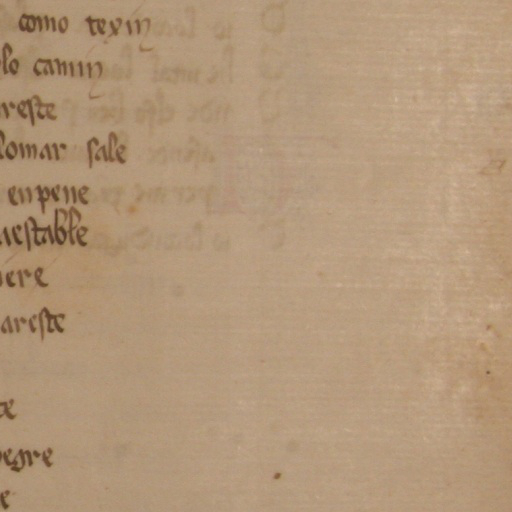 como texin
lo camin
reste
lomar sale
enpene
uestable
iere
areste
te
negre
e